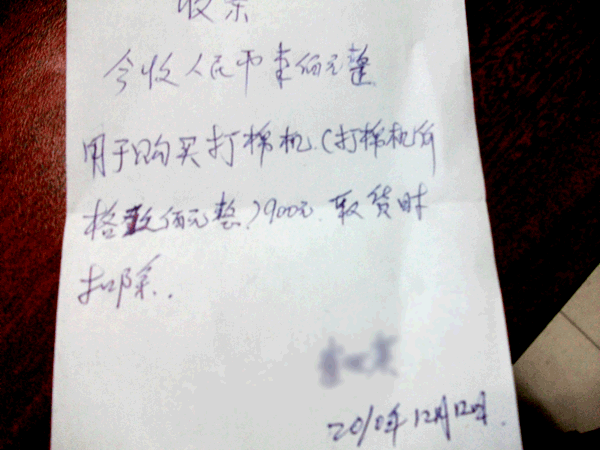 收条
今收人民币壹佰元整
用于购买打棉机(打棉机价
格玖佰元整)900元.取货时
扣除.
2010年12月12日.